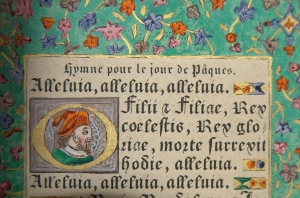 Hymne pour le jour de Pâques.
Alleluia, alleluia, alleluia.
O Filii & Filiae, Rex
coelestis, Rex glo
riae, morte surrexit
hodie, alleluia.
Alleluia, alleluia, alleluia.